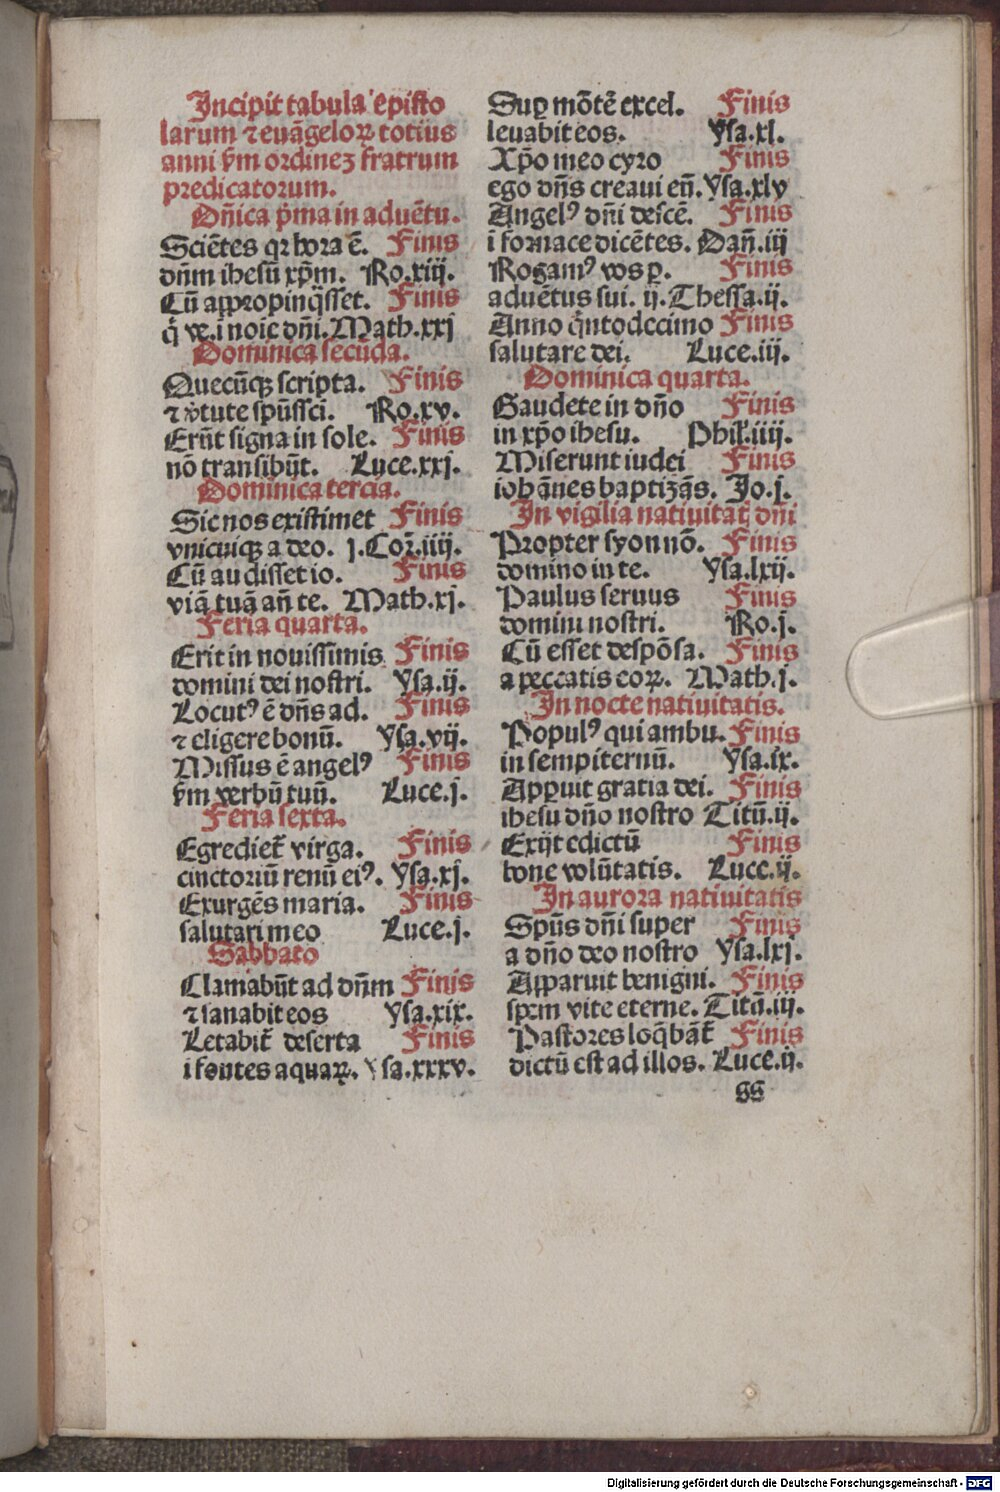 Incipit tabula episto
larum ⁊ euāgeloꝝ totius
anni ẜm ordineʒ fratrum
predicatorum.
Dn̄ica p̄ma in aduētu.
Sciētes qꝛ hora ē. Finis
dn̄m ihesū xp̄m. Ro.xiij.
Cū appropinq̄sset. Finis
q̇ vꝫ.ī noīe dn̄i. Math.xxj
Dominica secūda.
Quecūqꝫ scripta. Finis
⁊ v̄tute spūssci. Ro.xv.
Erūt signa in sole. Finis
nō transibūt. Luce.xxj.
Dominica tercia.
Sic nos existimet Finis
vnicuiqꝫ a deo. j.Cor̄.iiij.
Cū audisset io. Finis
viā tuā an̄ te. Math.xj.
Feria quarta.
Erit in nouissimis Finis
domini dei nostri. Ysa.ij.
Locutꝰ ē dn̄s ad. Finis
⁊ eligere bonū. Ysa.vij.
Missus ē angelꝰ Finis
ẜm verbū tuū. Luce.j.
Feria sexta.
Egrediet᷑ virga. Finis
cinctoriū renū eiꝰ. Ysa.xj.
Exurgēs maria. Finis
salutari meo Luce.j.
Sabbato
Clamabūt ad dn̄m Finis
⁊ sanabit eos Ysa.xix.
Letabit᷑ deserta Finis
i fontes aquaꝝ. Ysa.xxxv.
Suꝑ mōtē excel. Finis
leuabit eos. Ysa.xl.
Xp̄o meo cyro Finis
ego dn̄s creaui eū. Ysa.xlv
Angelꝰ dn̄i descē. Finis
i fornace dicētes. Dan̄.iij
Rogamꝰ vos ꝑ. Finis
aduētus sui. ij.Thessa.ij.
Anno q̇ntodecimo Finis
salutare dei. Luce.iii.
Dominica quarta.
Gaudete in dn̄o Finis
in xp̄o ihesu. Phil̄.iiij.
Miserunt iudei Finis
iohānes baptizās. Jo.j.
In vigilia natiuitatꝭ dn̄i
Propter syon nō. Finis
domino in te. Ysa.lxij.
Paulus seruus Finis
domini nostri. Ro.j.
Cū esset despōsa. Finis
a peccatis eoꝝ. Math.j.
In nocte natiuitatis.
Populꝰ qui ambu. Finis
in sempiternū. Ysa.ix.
Apꝑuit gratia dei. Finis
ihesu dn̄o nostro Titū.ij.
Exijt edictū Finis
bone volūtatis. Luce.ij.
In aurora natiuitatis
Spūs dn̄i super Finis
a dn̄o deo nostro Ysa.lxj.
Apparuit benigni. Finis
spem vite eterne. Titū.iij.
Pastores loq̄bāt᷑ Finis
dictū est ad illos. Luce.ij.
SS
Digitalisierung gefördert durch die Deutsche Forschungsgemeinschaft - DFG